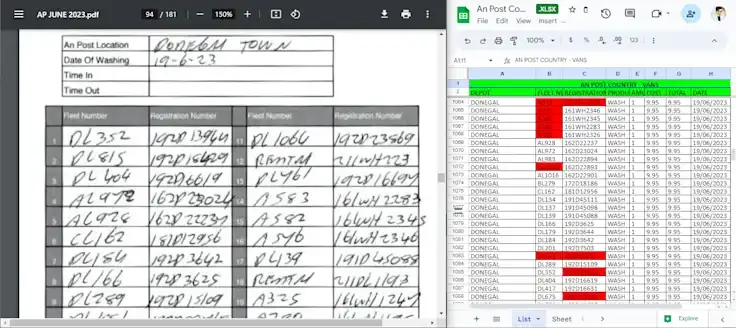 AP JUNE 2023.pdf
94 / 181
150%
An Post Location DONEGAL TOWN
Date Of Washing 19-6-23
Time In
Time Out
Fleet Number Registration Number Fleet Number Registration Number
1 DL352 192D13944 11 DL1064 192D23869
2 DL815 192D18429 12 RENTAL 211WH223
3 DL404 192D16619 13 DL461 192D16694
4 AL972 162D23024 14 A583 161WH2283
5 AL928 162D22237 15 A582 161WH2345
6 CL162 181D12956 16 A546 161WH2346
7 DL184 192D3642 17 DL139 191D45088
8 DL166 192D3625 18 RENTAL 211DL1193
9 DL289 192D15109 19 A325 161WH1247
An Post Co...
.XLSX
File Edit View Insert
100%
123
A1:I1 AN POST COUNTRY - VANS
A B C D E F G H
1 AN POST COUNTRY - VANS
2 DEPOT FLEET REGISTRATION TOTAL DATE
1064 DONEGAL WASH 1 9.95 9.95 19/06/2023
DONEGAL 161WH2346 WASH 1 9.95 9.95 19/06/2023
DONEGAL 161WH2345 WASH 1 9.95 9.95 19/06/2023
DONEGAL 161WH2283 WASH 1 9.95 9.95 19/06/2023
DONEGAL 161WH2326 WASH 1 9.95 9.95 19/06/2023
1069 DONEGAL AL928 162D22237 WASH 1 9.95 9.95 19/06/2023
1070 DONEGAL AL972 162D23024 WASH 1 9.95 9.95 19/06/2023
1071 DONEGAL AL983 162D22894 WASH 1 9.95 9.95 19/06/2023
1072 DONEGAL 162D22893 WASH 1 9.95 9.95 19/06/2023
DONEGAL AL1016 162D22901 WASH 1 9.95 9.95 19/06/2023
1074 DONEGAL BL279 172D18186 WASH 1 9.95 9.95 19/06/2023
DONEGAL CL162 181D12956 WASH 1 9.95 9.95 19/06/2023
DONEGAL DL134 191D45111 WASH 1 9.95 9.95 19/06/2023
DONEGAL DL137 191D45098 WASH 1 9.95 9.95 19/06/2023
DONEGAL DL139 191D45088 WASH 1 9.95 9.95 19/06/2023
DONEGAL DL166 192D3625 WASH 1 9.95 9.95 19/06/2023
1080 DONEGAL DL179 192D3644 WASH 1 9.95 9.95 19/06/2023
1081 DONEGAL DL184 192D3642 WASH 1 9.95 9.95 19/06/2023
1082 DONEGAL DL201 192D7503 WASH 1 9.95 9.95 19/06/2023
1083 DONEGAL WASH 1 9.95 9.95 19/06/2023
1084 DONEGAL DL289 192D15109 WASH 1 9.95 9.95 19/06/2023
1085 DONEGAL DL352 WASH 1 9.95 9.95 19/06/2023
1086 DONEGAL DL404 192D16619 WASH 1 9.95 9.95 19/06/2023
1087 DONEGAL DL417 192D16631 WASH 1 9.95 9.95 19/06/2023
1088 DONEGAL DL675 WASH 1 9.95 9.95 19/06/2023
List Sheet6 Explore